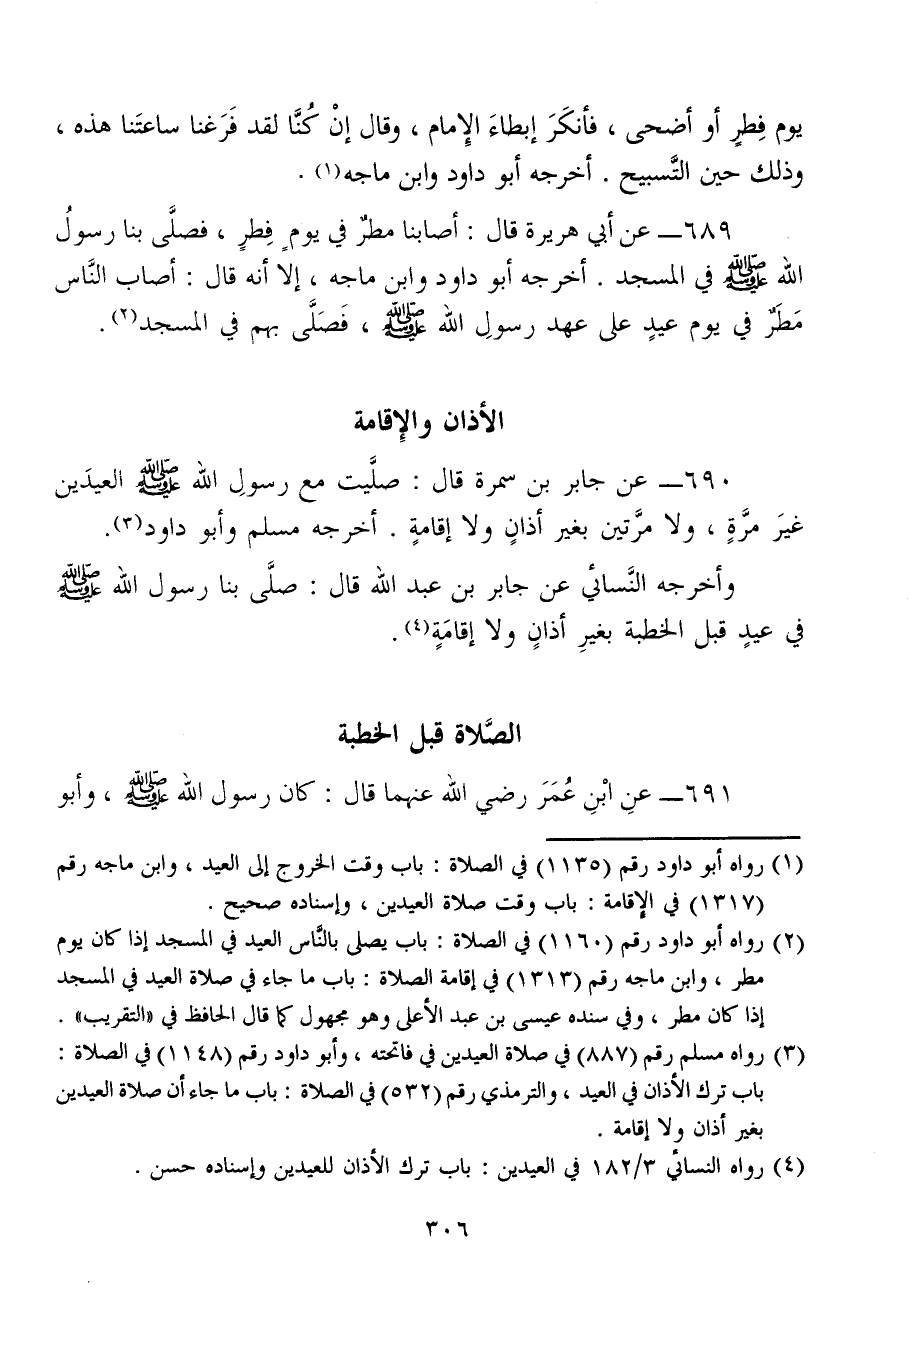 يوم فِطرٍ أو أضحى ، فأنكَرَ إبطاءَ الإمام ، وقال إنْ كُنَّا لقد فَرَغنا ساعتَنا هذه ،
وذلك حين التَّسبيح . أخرجه أبو داود وابن ماجه(١) .
٦٨٩ــ عن أبي هريرة قال : أصابنا مطرٌ في يومِ فِطرٍ ، فصلَّى بنا رسولُ
الله ﷺ في المسجد . أخرجه أبو داود وابن ماجه ، إلا أنه قال : أصاب النَّاس
مَطَرٌ في يوم عيدٍ على عهد رسولِ الله ﷺ ، فَصَلَّى بهم في المسجد(٢).
الأذان والإقامة
٦٩٠ــ عن جابر بن سمرة قال : صلَّيت مع رسولِ الله ﷺ العيدَين
غيرَ مرَّةٍ ، ولا مرَّتين بغير أذانٍ ولا إقامةٍ . أخرجه مسلم وأبو داود(٣).
وأخرجه النَّسائي عن جابر بن عبد الله قال : صلَّى بنا رسول الله ﷺ
في عيدٍ قبل الخطبة بغيرِ أذانٍ ولا إقامَةٍ(٤).
الصَّلاة قبل الخطبة
٦٩١ــ عنِ ابْنِ عُمَرَ رضي الله عنهما قال : كان رسول الله ﷺ ، وأبو
(١) رواه أبو داود رقم (١١٣٥) في الصلاة : باب وقت الخروج إلى العيد ، وابن ماجه رقم
(١٣١٧) في الإقامة : باب وقت صلاة العيدين ، وإسناده صحيح .
(٢) رواه أبو داود رقم (١١٦٠) في الصلاة : باب يصلي بالنَّاس العيد في المسجد إذا كان يوم
مطر ، وابن ماجه رقم (١٣١٣) في إقامة الصلاة : باب ما جاء في صلاة العيد في المسجد
إذا كان مطر ، وفي سنده عيسى بن عبد الأعلى وهو مجهول كما قال الحافظ في «التقريب» .
(٣) رواه مسلم رقم (٨٨٧) في صلاة العيدين في فاتحته ، وأبو داود رقم (١١٤٨) في الصلاة :
باب ترك الأذان في العيد ، والترمذي رقم (٥٣٢) في الصلاة : باب ما جاء أن صلاة العيدين
بغير أذان ولا إقامة .
(٤) رواه النسائي ١٨٢/٣ في العيدين : باب ترك الأذان للعيدين وإسناده حسن .
٣٠٦